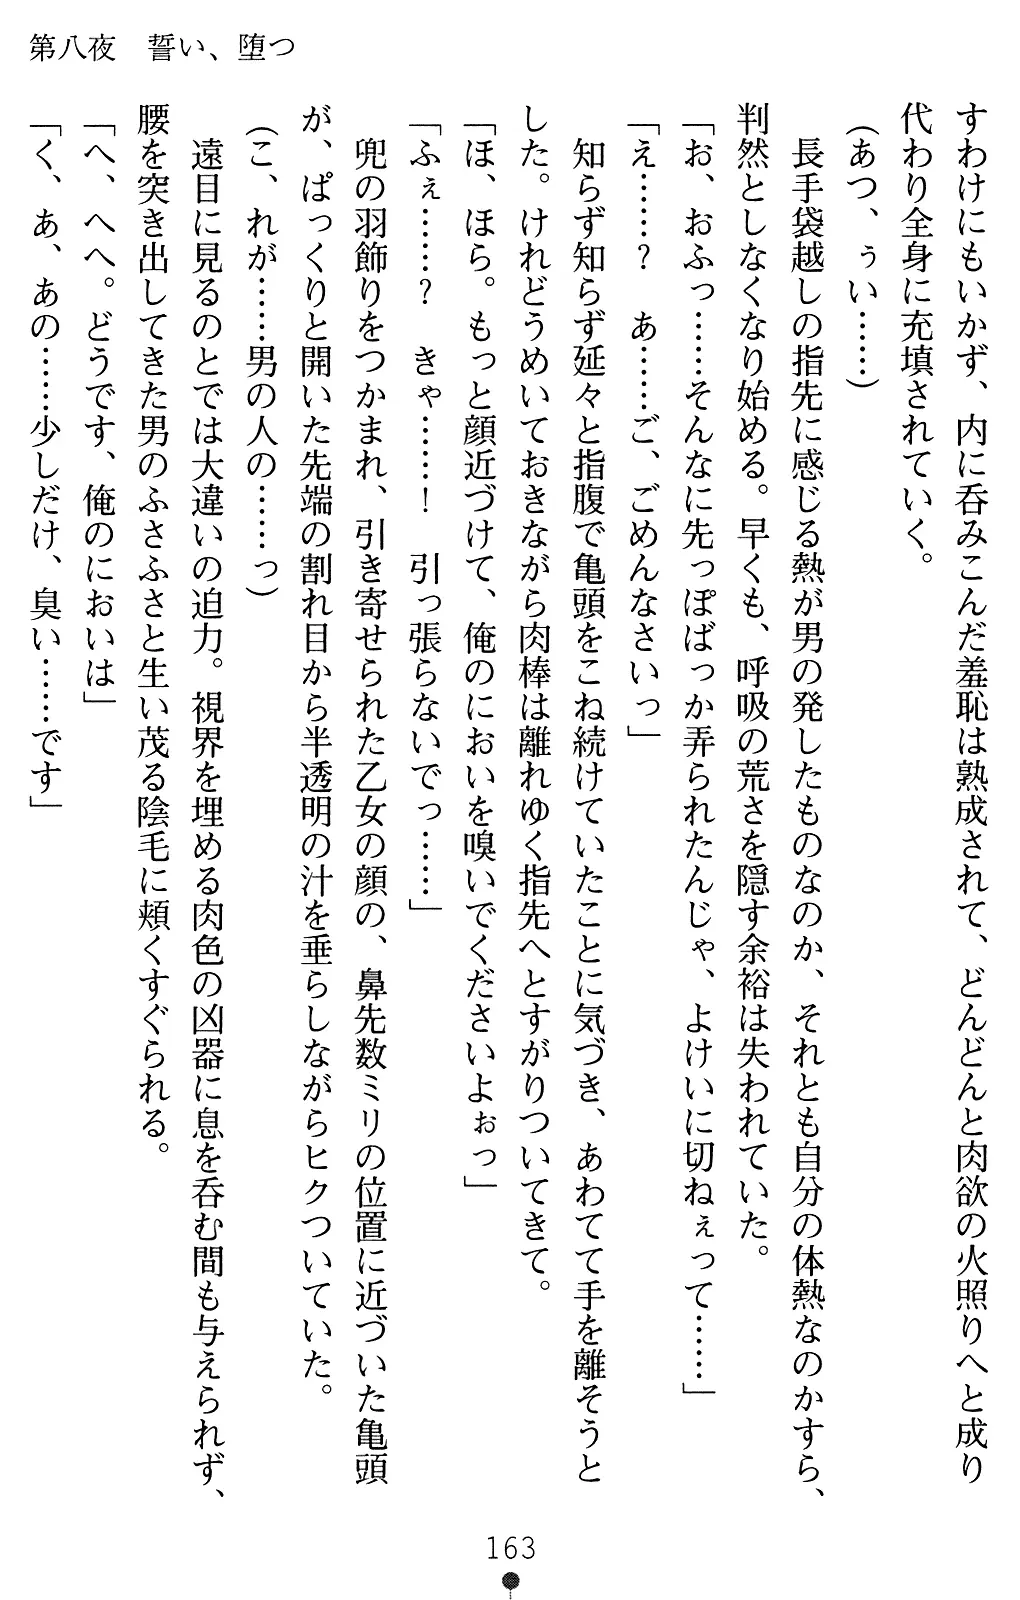 第八夜　誓い、堕つ
すわけにもいかず、内に呑みこんだ羞恥は熟成されて、どんどんと肉欲の火照りへと成り
代わり全身に充填されていく。
（あつ、ぅい……）
　長手袋越しの指先に感じる熱が男の発したものなのか、それとも自分の体熱なのかすら、
判然としなくなり始める。早くも、呼吸の荒さを隠す余裕は失われていた。
「お、おふっ……そんなに先っぽばっか弄られたんじゃ、よけいに切ねぇって……」
「え……？　あ……ご、ごめんなさいっ」
　知らず知らず延々と指腹で亀頭をこね続けていたことに気づき、あわてて手を離そうと
した。けれどうめいておきながら肉棒は離れゆく指先へとすがりついてきて。
「ほ、ほら。もっと顔近づけて、俺のにおいを嗅いでくださいよぉっ」
「ふぇ……？　きゃ……！　引っ張らないでっ……」
　兜の羽飾りをつかまれ、引き寄せられた乙女の顔の、鼻先数ミリの位置に近づいた亀頭
が、ぱっくりと開いた先端の割れ目から半透明の汁を垂らしながらヒクついていた。
（こ、れが……男の人の……っ）
　遠目に見るのとでは大違いの迫力。視界を埋める肉色の凶器に息を呑む間も与えられず、
腰を突き出してきた男のふさふさと生い茂る陰毛に頬くすぐられる。
「へ、へへ。どうです、俺のにおいは」
「く、あ、あの……少しだけ、臭い……です」
163